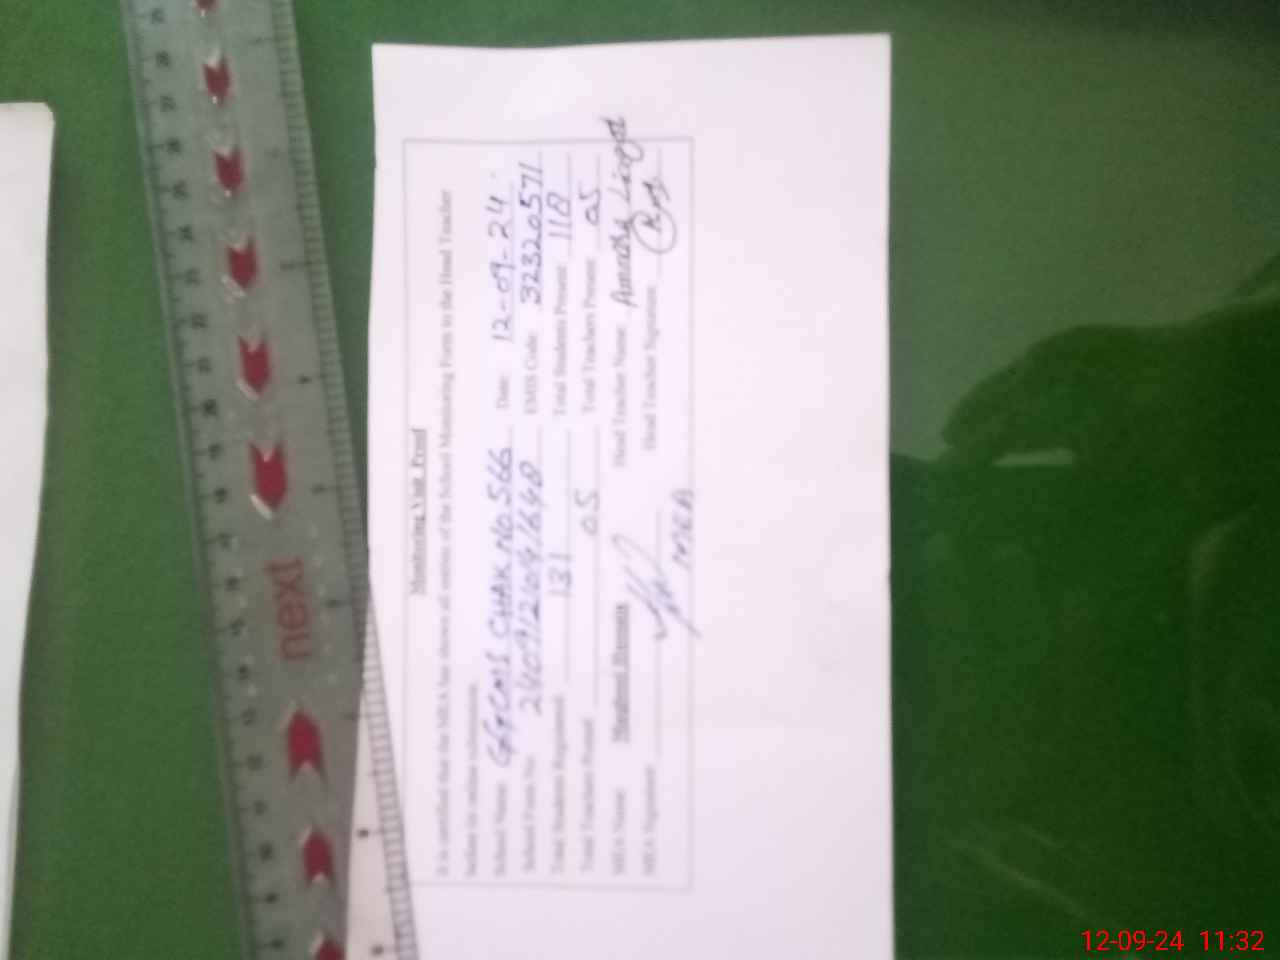 Monitoring Visit Proof
It is certified that the MEA has shown all entries of the School Monitoring Form to the Head Teacher
before its online submission.
School Name: GGCMS CHAK NO 566 Date: 12-09-24
School Form No: EMIS Code: 32320571
Total Students Registered: 131 Total Students Present: 118
Total Teachers Posted: 05 Total Teachers Present: 05
MEA Name: Head Teacher Name:
MEA Signature: Head Teacher Signature:
MEA
next
12-09-24 11:32